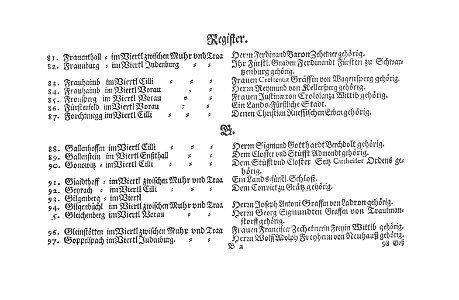 Register.
81. Frauenthall = im Viertl zwischen Muhr und Traa Herrn Ferdinand Baron Zehetner gehörig.
82. Frauenburg = im Viertl Judenburg = = Ihr Fürstl. Gnaden Ferdinandt Fürsten zu Schwar-
tzenburg gehörig.
83. Frauhaimb im Viertl Cilli = = = Frauen Gräffin von Wagensperg gehörig.
84. Frauhaimb im Viertl Vorau = = Herrn Reymund von Kellersperg gehörig.
85. Fronsperg im Viertl Vorau = = Frauen Justina von Wittib gehörig.
86. Fürstenfeld im Viertl Vorau = = Ein Lands-Fürstliche Stadt.
87. Forchtnegg im Viertl Cilli = = = Denen Christian Erben gehörig.
G.
88. Gallenhoffen im Viertl Cilli = = Herrn Sigmund Gotthardt Berchdolt gehörig.
89. Gallenstein im Viertl Ensthall = = Dem Closter und Stüfft Admondt gehörig.
90. Gonowitz = im Viertl Cilli = = = Dem Stüfft und Closter Seitz Ordens ge-
hörig.
91. Giaidthoff = im Viertl zwischen Muhr und Traa Ein Lands-fürstl. Schloß.
92. Geyrach = im Viertl Cilli = = = Dem Convict zu Grätz gehörig.
93. Gilgenberg = im Viertl
94. im Viertl zwischen Muhr und Traa Herrn Joseph Antoni Graffen von Lodron gehörig.
5. Gleichenberg im Viertl Vorau = = Herrn Georg Sigmundten Graffen von Trautman-
storff gehörig.
96. Gleinstätten im Viertl zwischen Muhr und Traa Frauen Francisca Zechetnerin Freyin Wittib gehörig.
97. Goppelspach im Viertl Judenburg. = = Herrn Wolff Adolph Freyherrn von Neuhauß gehörig.
B 2 98